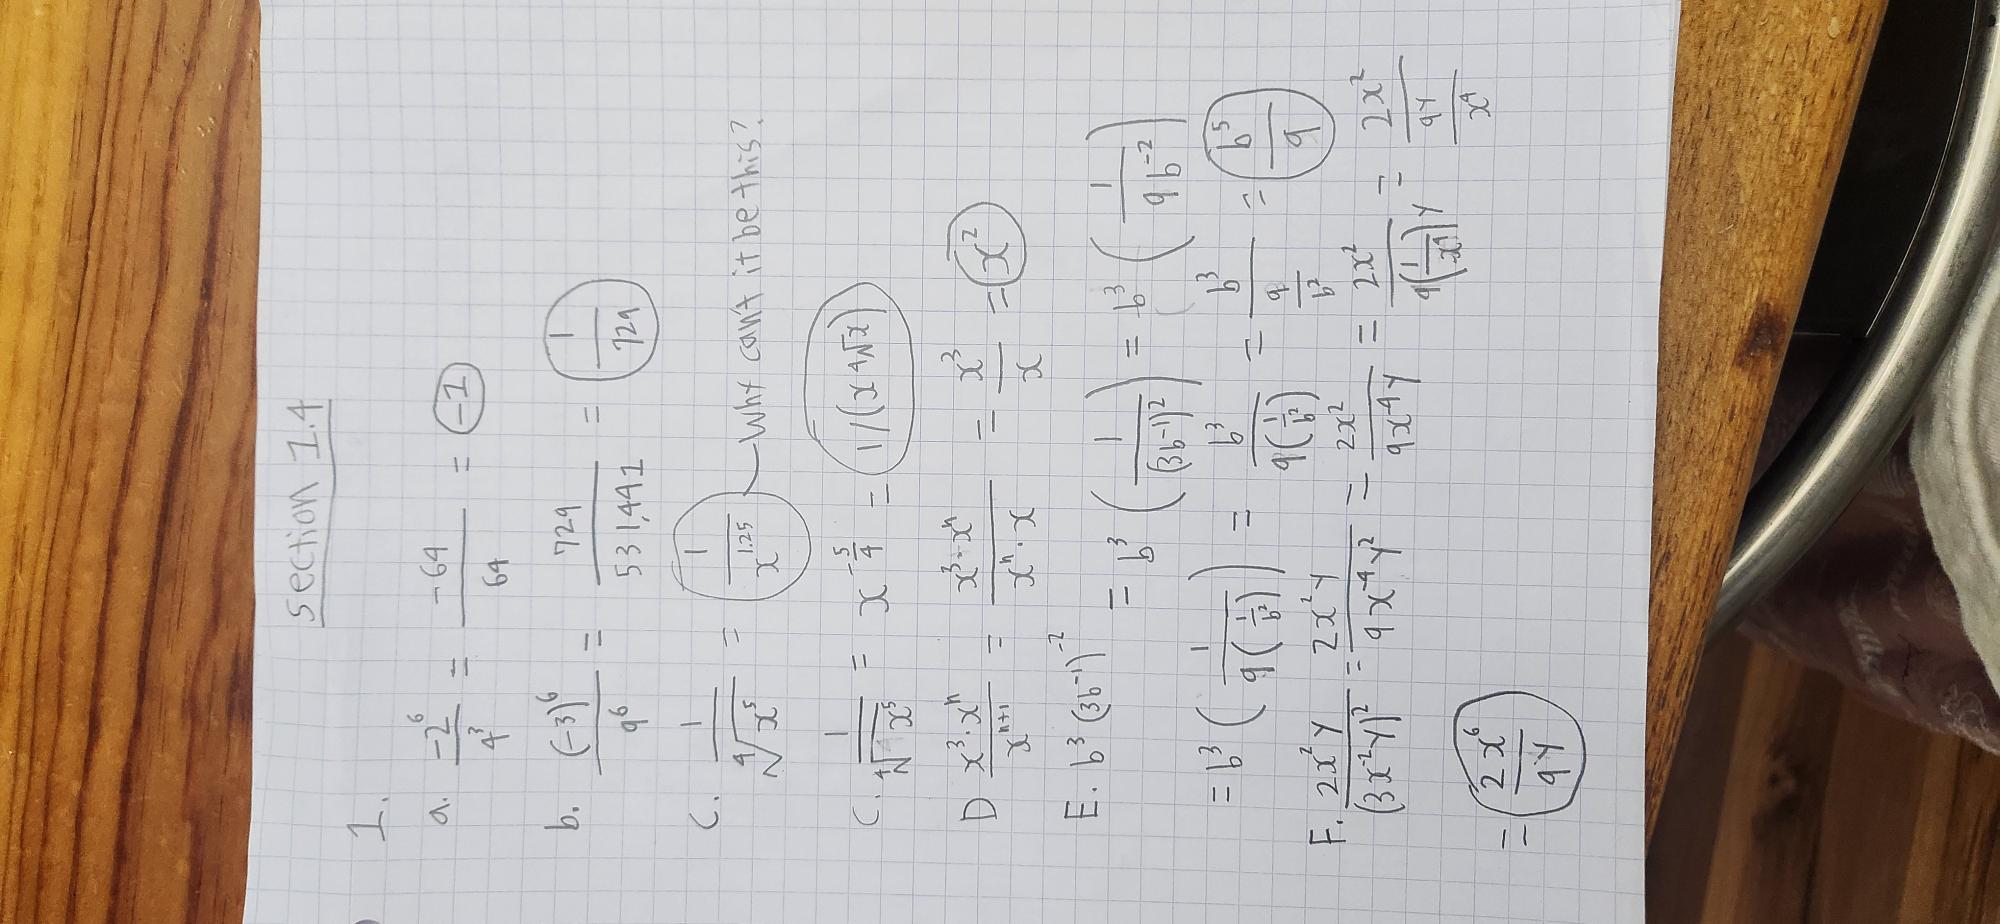 section 1.4
1.
a. -2^6/4^3 = -64/64 = -1
b. (-3)^6/9^6 = 729/531,441 = 1/729
C. 1/⁴√x^5 = 1/x^1.25 — Why can't it be this?
C. 1/⁴√x^5 = x^-5/4 = 1/(x ⁴√x)
D x^3·x^n/x^n+1 = x^3·x^n/x^n·x = x^3/x = x^2
E. b^3 (3b^-1)^-2 = b^3 (1/(3b^-1)^2) = b^3 (1/9b^-2)
= b^3 (1/9(1/b^2)) = b^3/9(1/b^2) = b^3/(9/b^2) = b^5/9
F. 2x^2y/(3x^-2y)^2 = 2x^2y/9x^-4y^2 = 2x^2/9x^-4y = 2x^2/9(1/x^4)y = 2x^2/(9y/x^4)
= 2x^6/9y